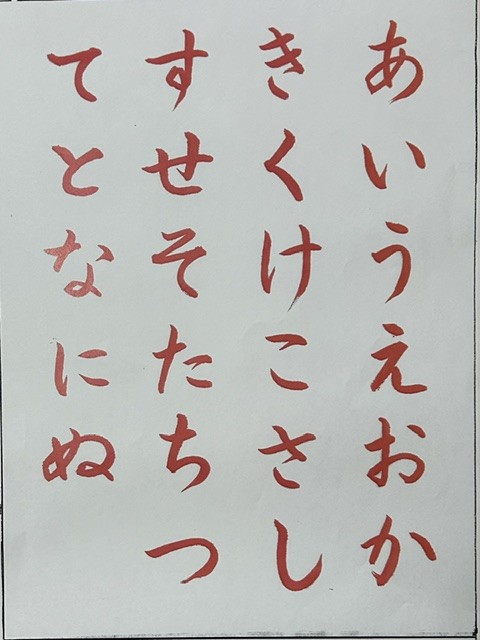 あいうえおか
きくけこさし
すせそたちつ
てとなにぬ